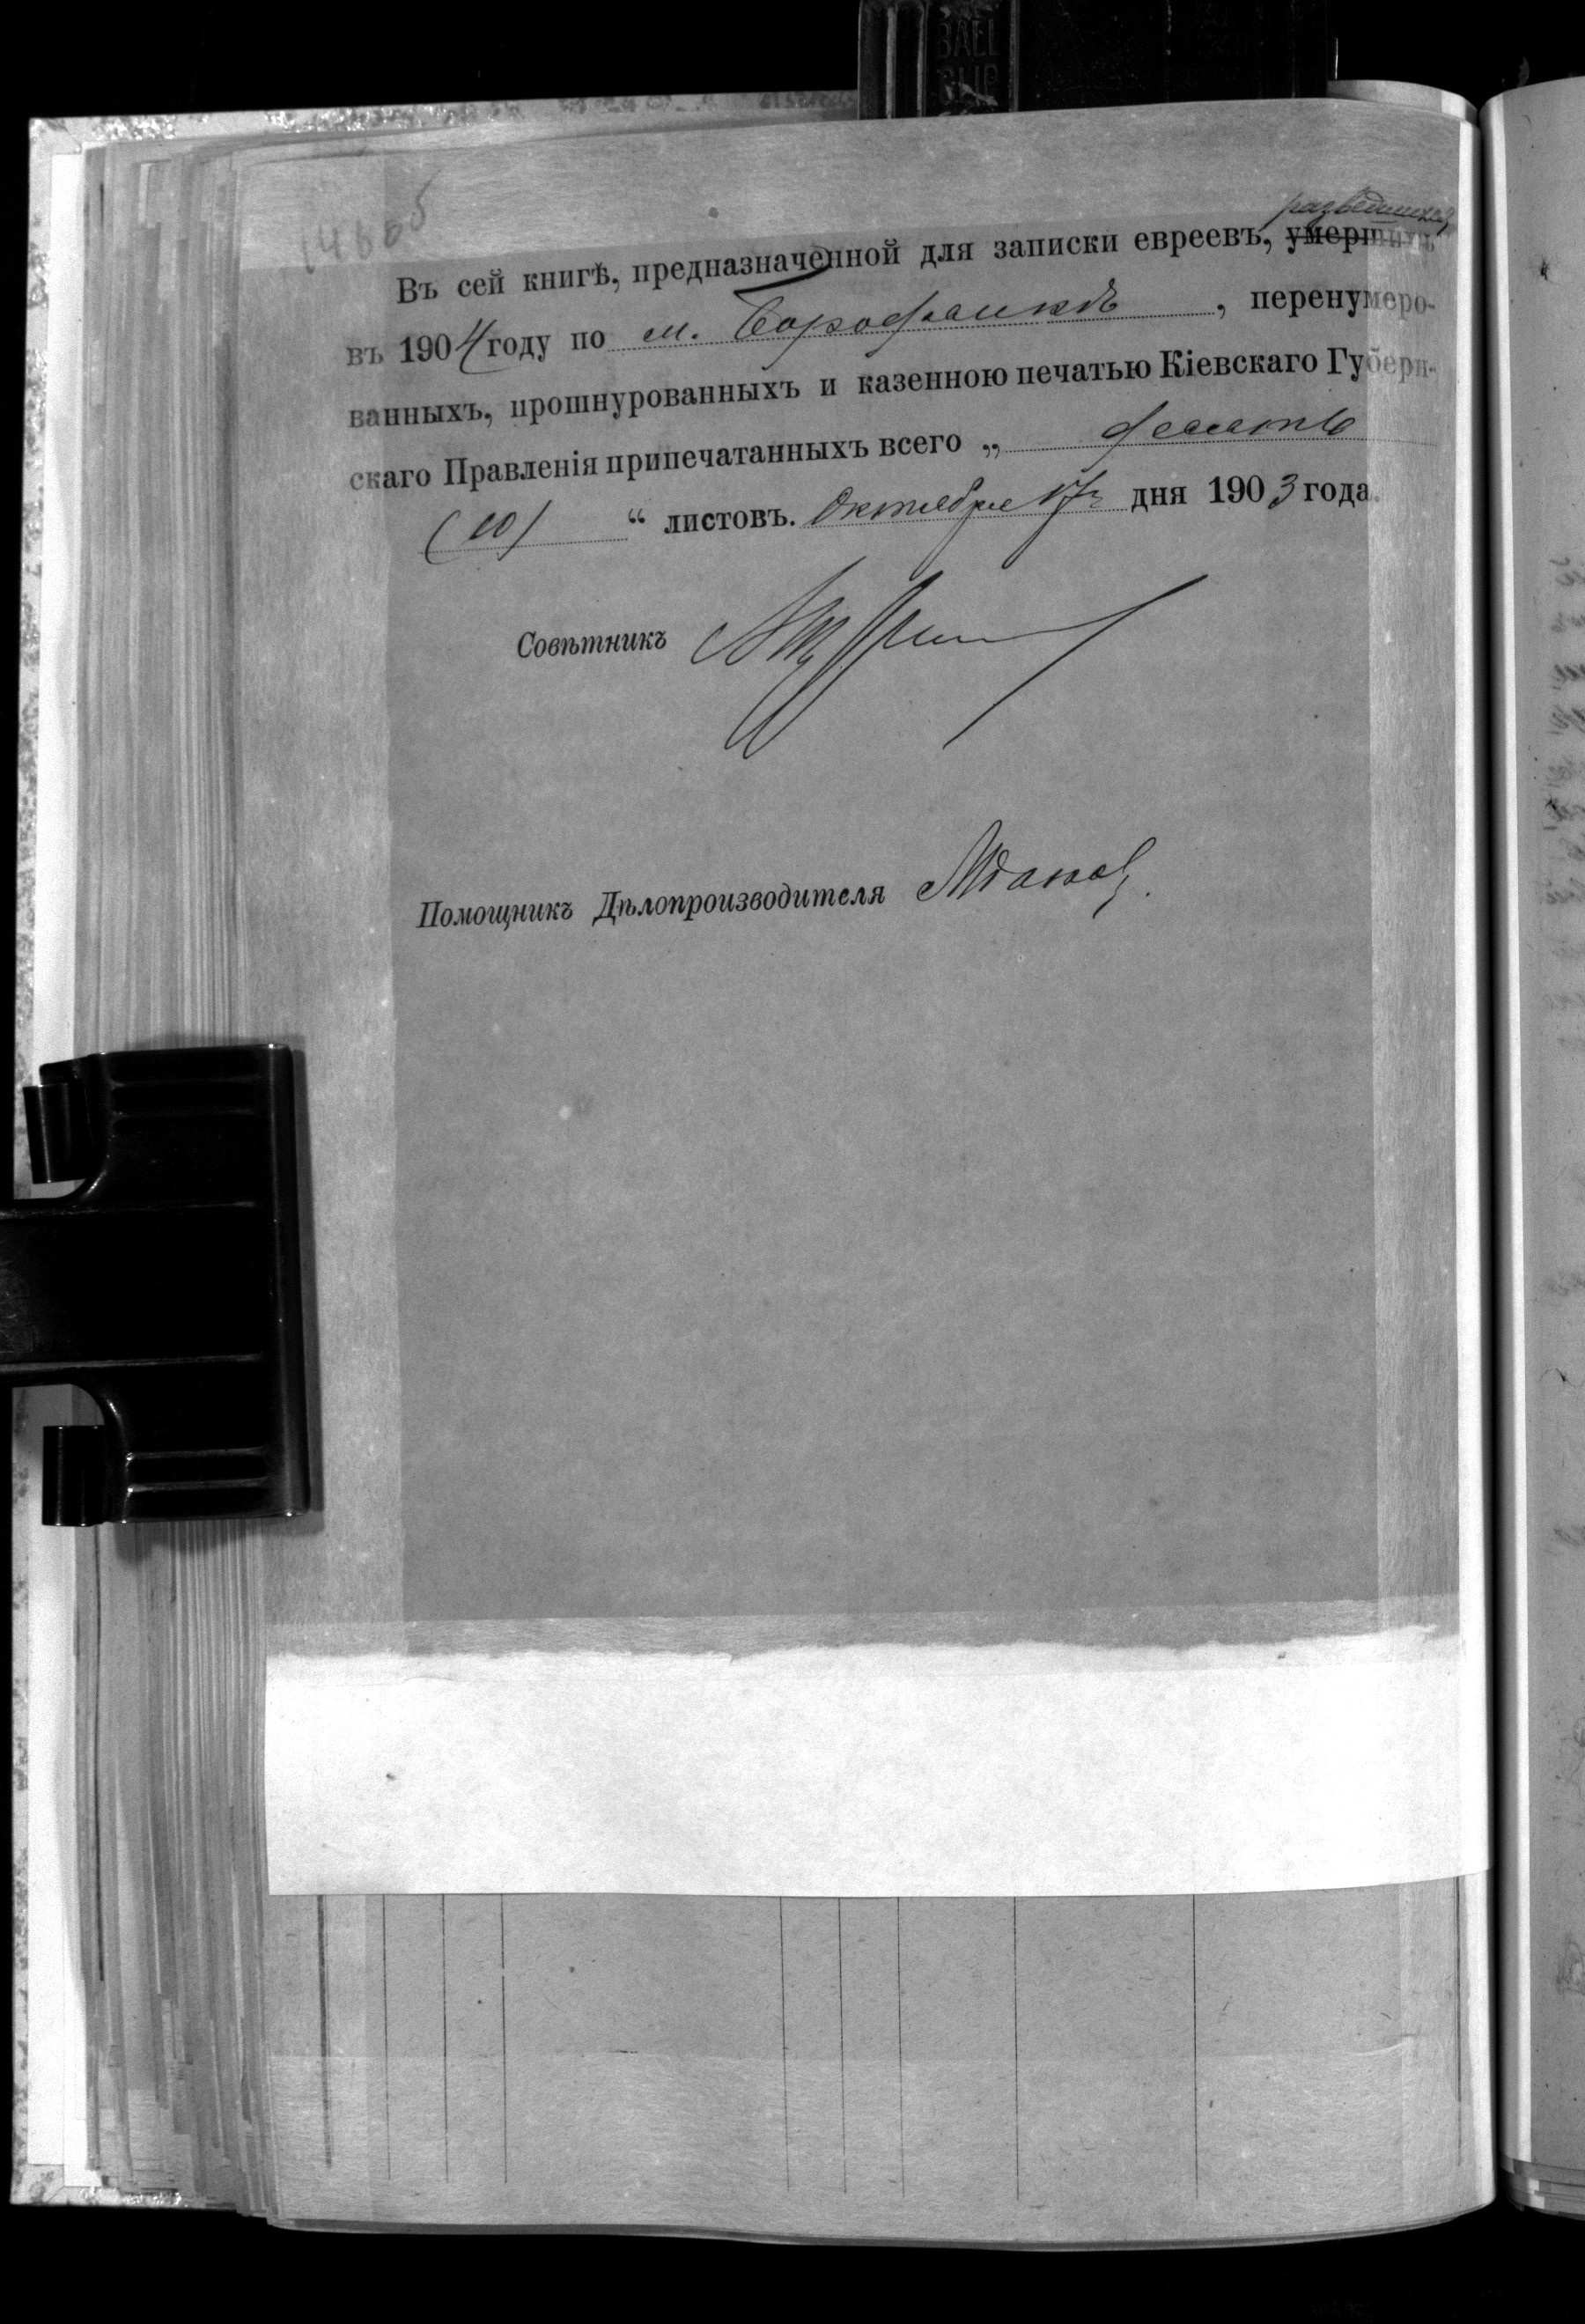 146об
разведшихся
Въ сей книгѣ, предназначенной для записки евреевъ, умершихъ
въ 1904 году по м. Борофянкѣ, перенумеро-
ванныхъ, прошнурованныхъ и казенною печатью Кіевскаго Губерн-
скаго Правленія припечатанныхъ всего „ десять
(10) “ листовъ. Октября 17 дня 1903 года.
Совѣтникъ
Помощникъ Дѣлопроизводителя